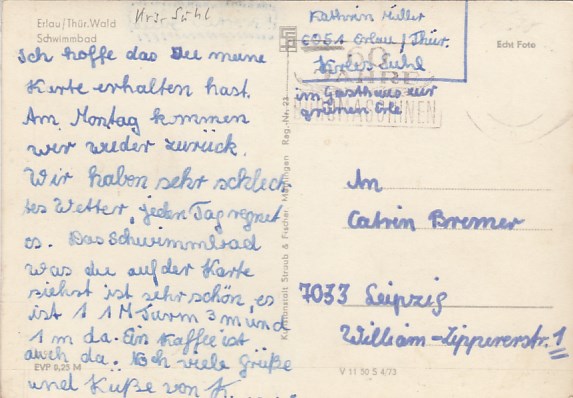 Erlau/Thür. Wald
Schwimmbad
Krs. Suhl
Ich hoffe das Du meine
Karte erhalten hast.
Am Montag kommen
wir wieder zurück.
Wir haben sehr schlech-
tes Wetter, jeden Tag regnet
es. Das Schwimmbad
was du auf der Karte
siehst ist sehr schön, es
ist 1 1M Turm 3m und
1 m da. Ein Kaffee ist
auch da. Noch viele Grüße
und Küße von K
EVP 0,25 M
Kunstanstalt Straub & Fischer Meiningen Reg.-Nr. 23
Kathrin Müller
6051 Erlau/Thür.
Kreis Suhl
im Gasthaus zur
grünen Erle
Echt Foto
60
JAHRE
BÜROMASCHINEN
An
Catrin Bremer
7033 Leipzig
William-Zippererstr. 1
V 11 50 S 4/73